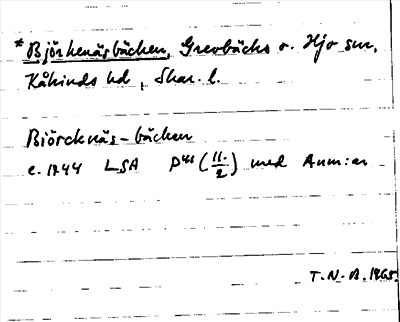 *Björkenäsbäcken, Grevbäcks o. Hjo snr,
Kåkinds hd, Skar. l.
Biörcknäs-bäcken
c. 1744 LSA P⁴⁸ (11/2) med Anm:ar
T.N.B. 1965.